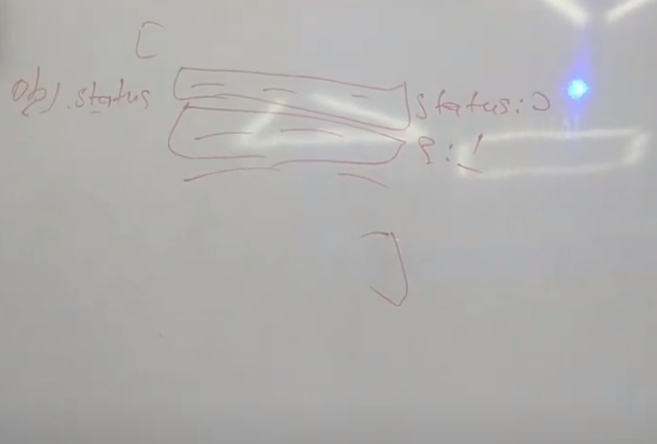 [
obj.status status:0
s:1
]